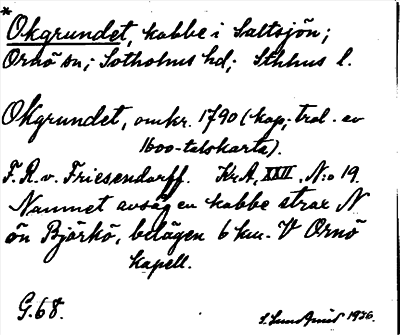 *Okgrundet, kobbe i Saltsjön;
Ornö sn; Sotholms hd; Sthlms l.
Okgrundet, omkr. 1790 (kop; trol. av
1600-talskarta).
F. R. v. Friesendorff. Kr.A. XXII, N:o 19.
Namnet avsåg en kobbe strax N
ön Björkö, belägen 6 km. V Ornö
kapell.
G. 68.
1936.